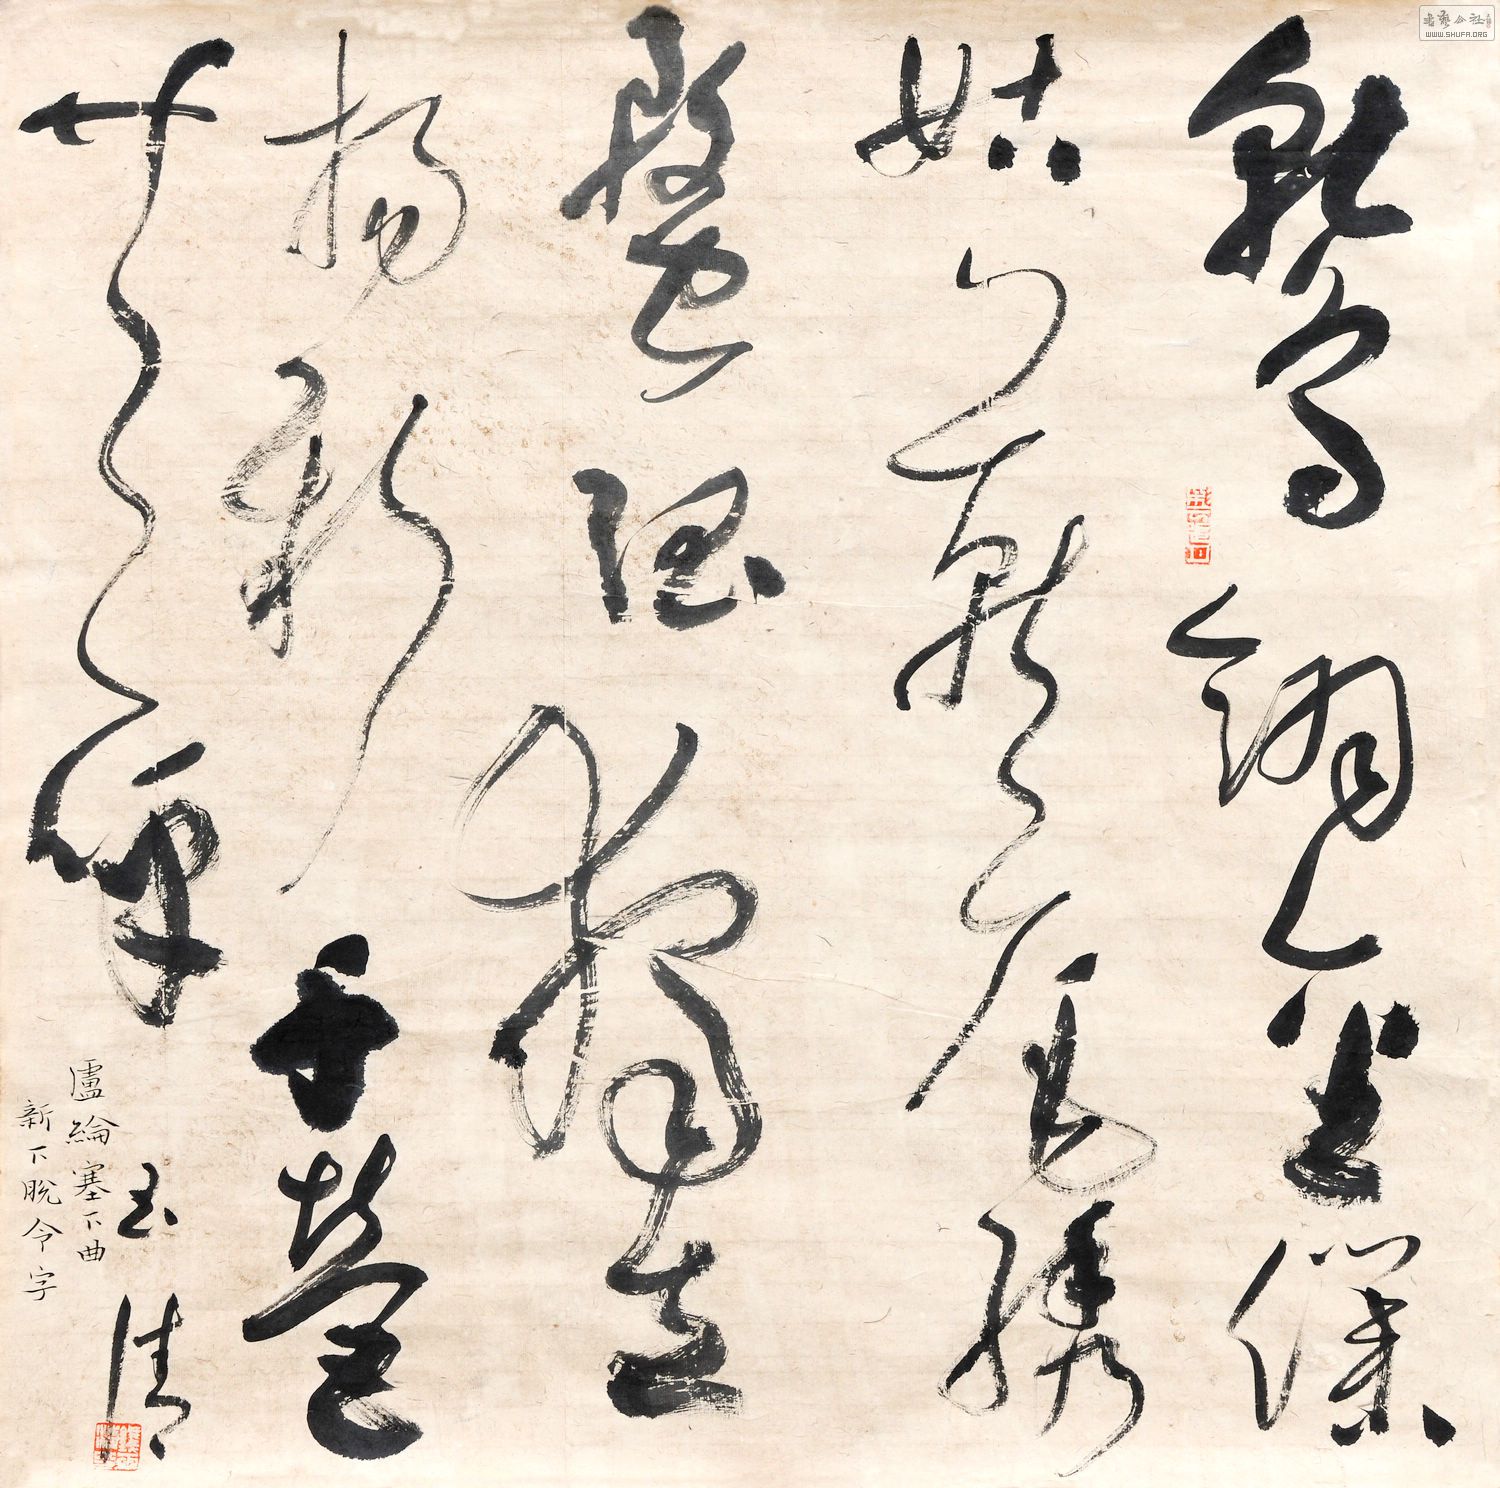 鷲翎金僕
姑燕尾繡
蝥弧獨立
揚新千營
共一呼
玉清
盧綸塞下曲
新下脫令字
書藝公社
WWW.SHUFA.ORG